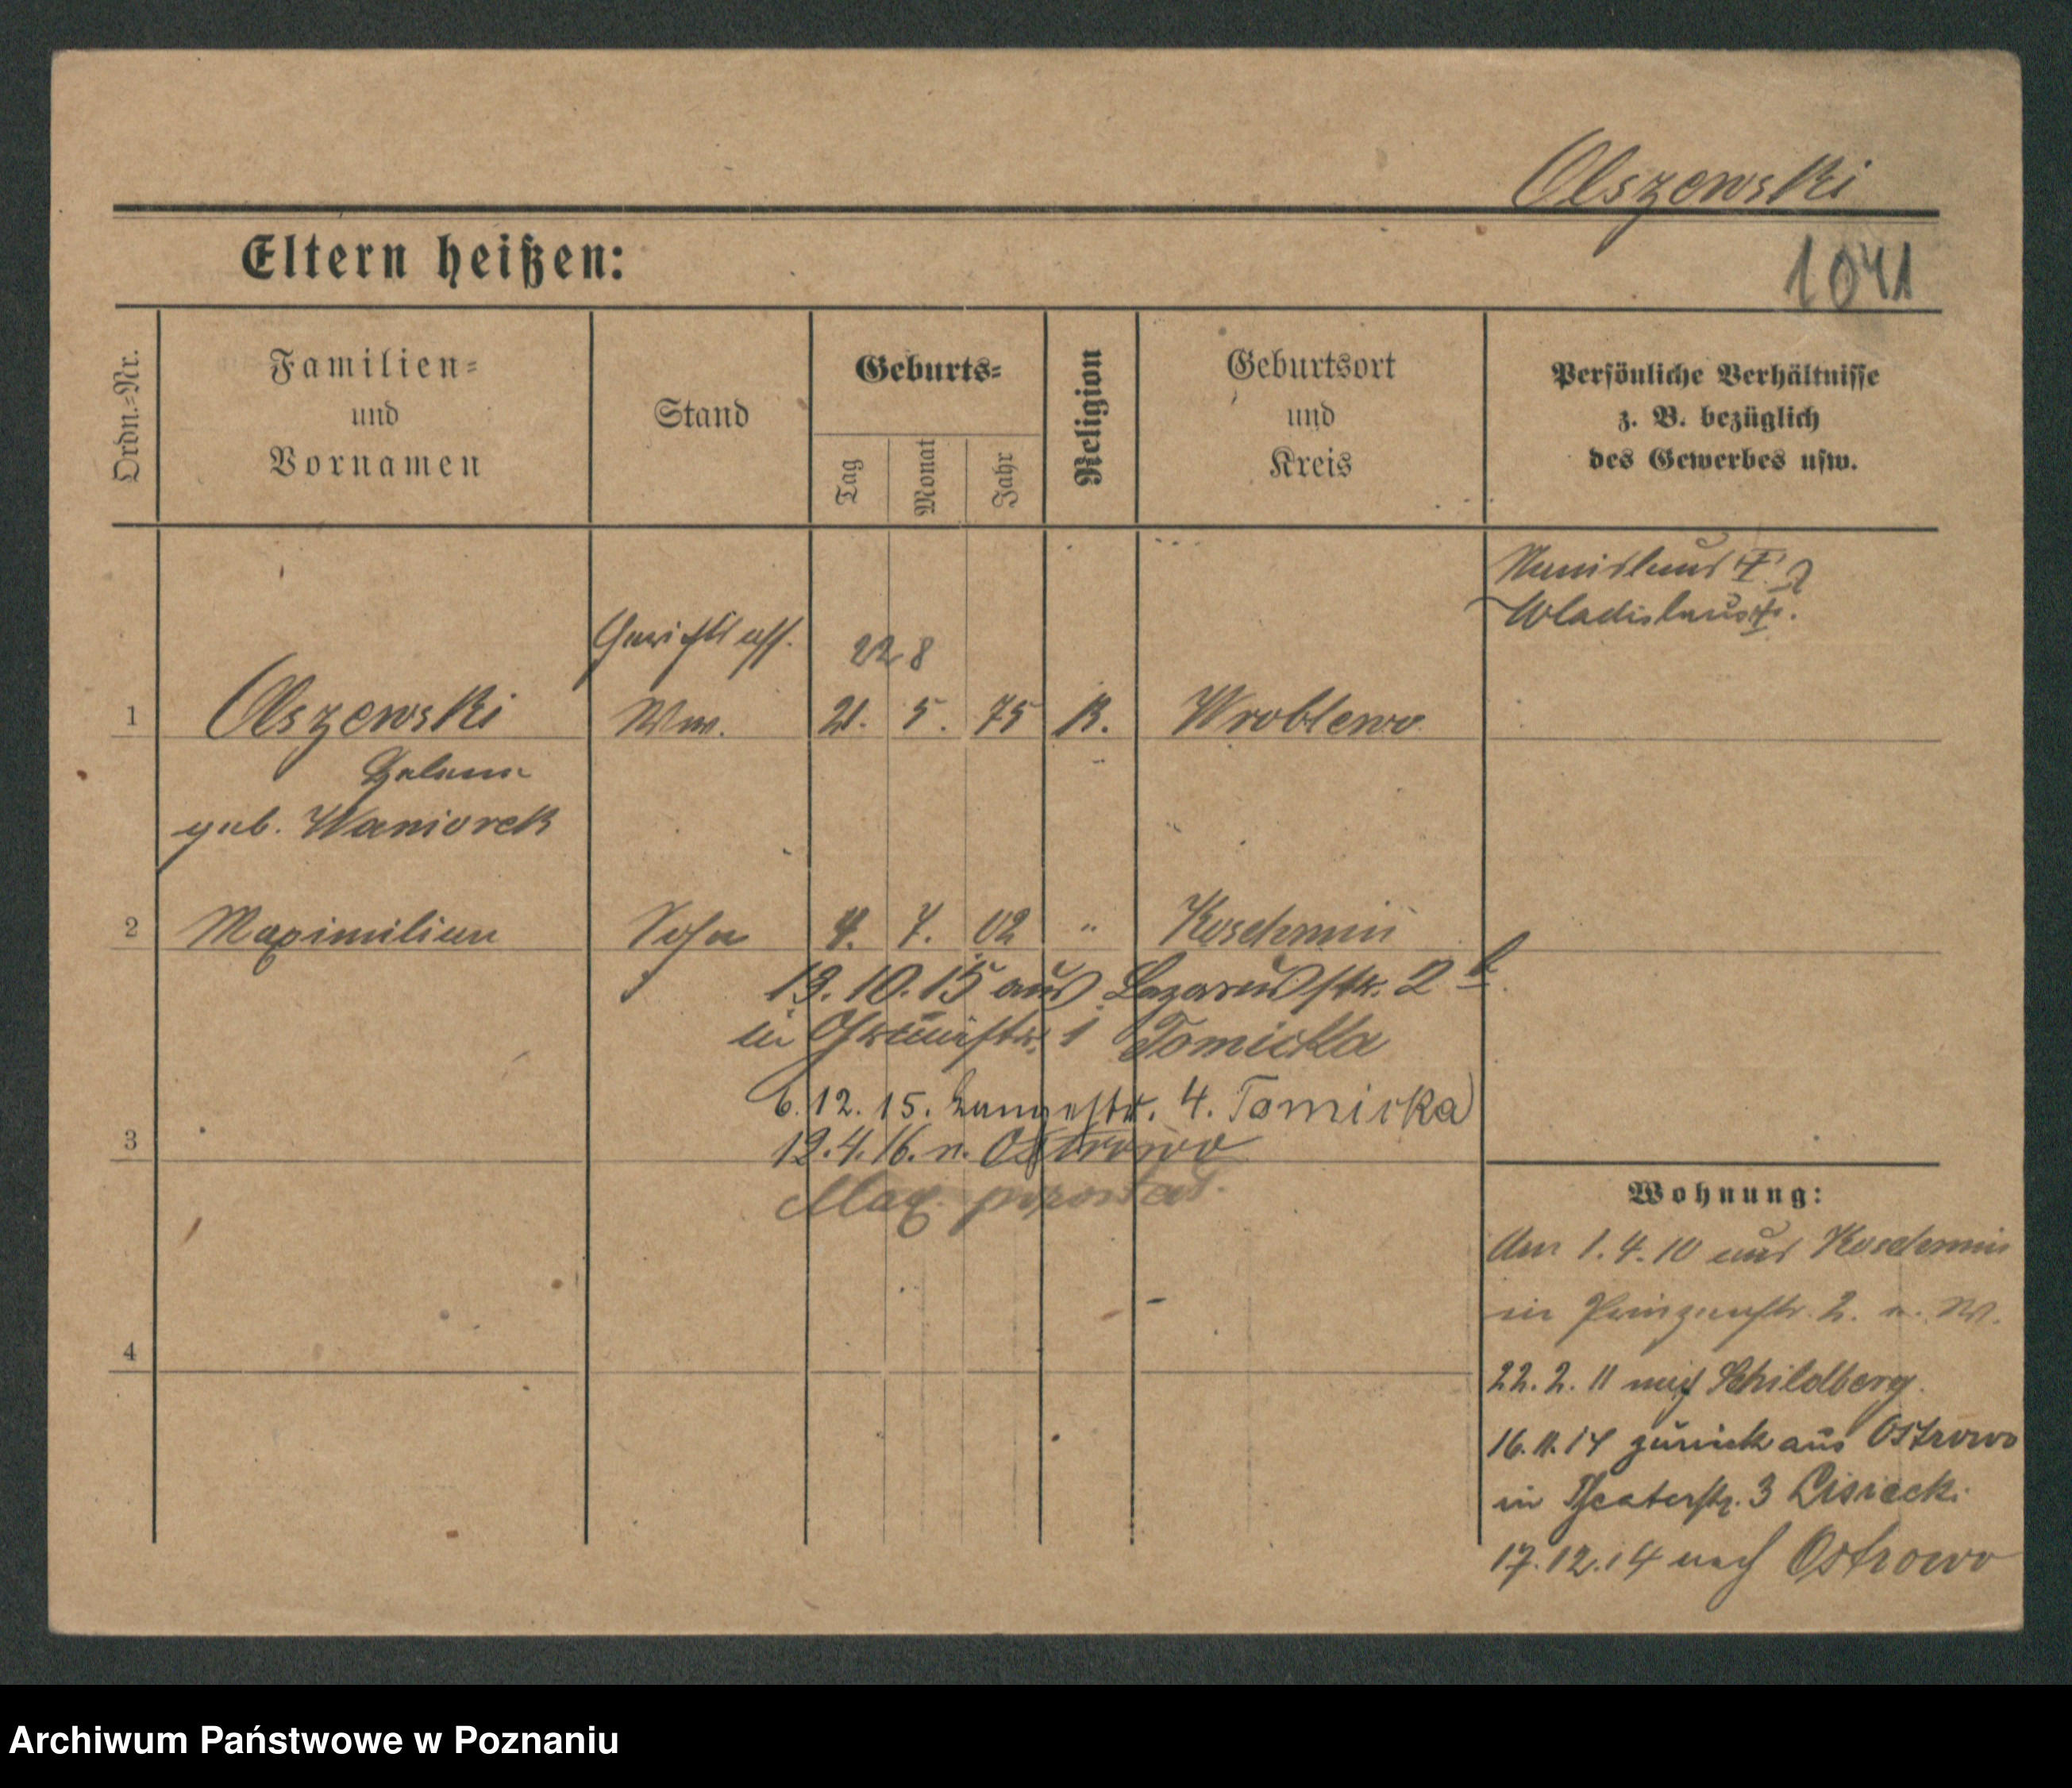 Olszewski
Eltern heißen:
1041
Ordn.=Nr.
Familien=
und
Vornamen
Stand
Geburts=
Tag
Monat
Jahr
Religion
Geburtsort
und
Kreis
Persönliche Verhältnisse
z. B. bezüglich
des Gewerbes usw.
Wladislaus
22 8
1 Olszewski Ww. 21. 5. 75 K. Wroblewo
geb. Waniorek
2 Maximilian Sohn 4. 7. 02 " Koschmin
13. 10. 15 aus Lazarusstr. 2
in 1 Tomicka
6. 12. 15. Langestr. 4. Tomicka
3
12. 4. 16. n. Ostrowo
Max.
4
Wohnung:
Am 1. 4. 10 aus Koschmin
in Prinzenstr. 2. n. W.
22. 2. 11 nach Schildberg.
16. 11. 14 zurück aus Ostrowo
in Theaterstr. 3 Lisiack.
17. 12. 14 nach Ostrowo
Archiwum Państwowe w Poznaniu